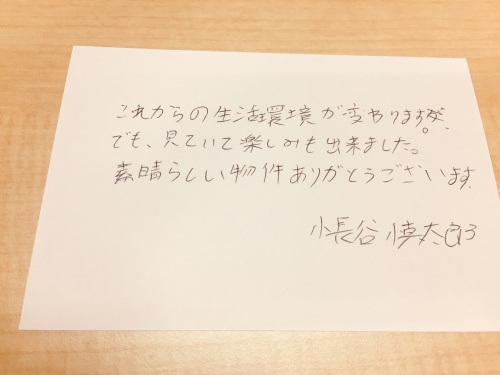 これからの生活環境が変わりますが。
でも、見ていて楽しみも出来ました。
素晴らしい物件ありがとうございます
小長谷 慎太郎